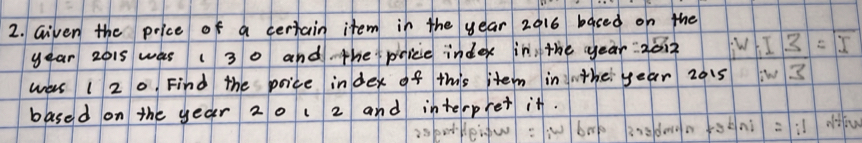 2. Given the price of a certain item in the year 2016 based on the
year 2015 was 130 and the price index in the year 2012
was 120. Find the price index of this item in the year 2015
based on the year 2012 and interpret it.